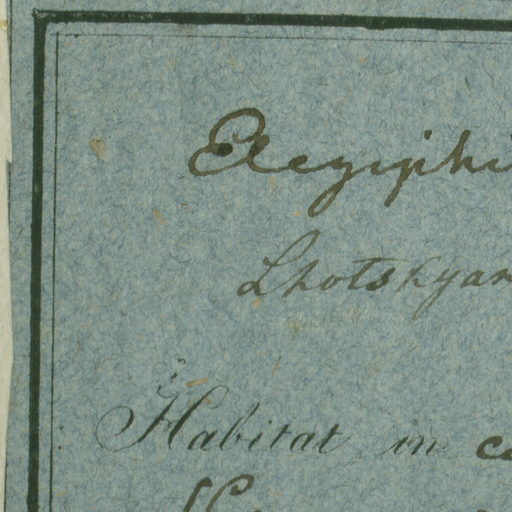 Aegiphi
Lhotskyan
Habitat in ca